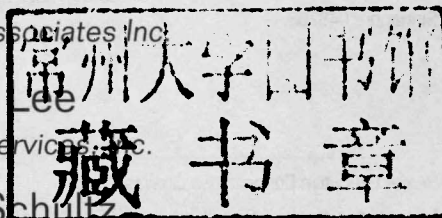 ssociates Inc.
常州大学图书馆
Lee
ervices, Inc.
藏书章
Schultz